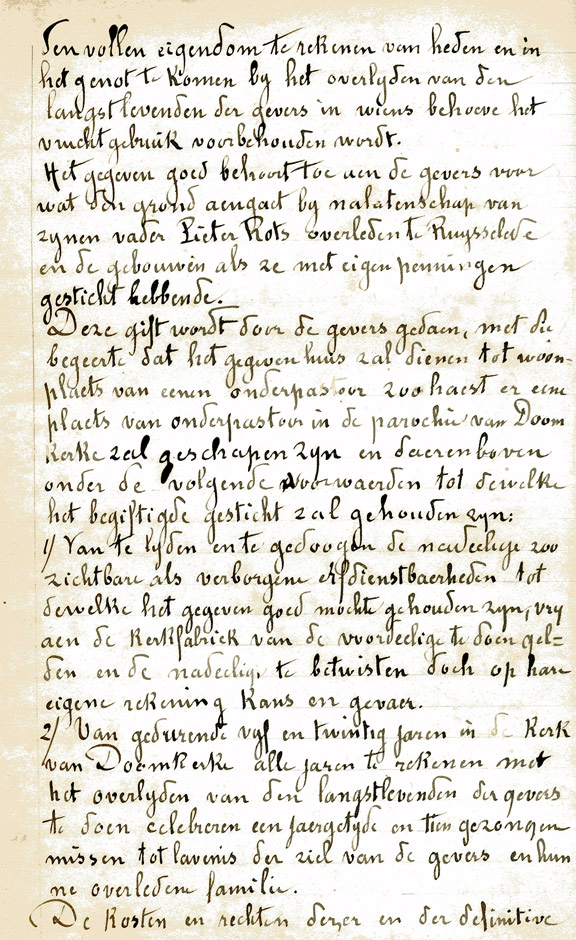 Ten vollen eigendom te rekenen van heden en in
het genot te komen by het overlyden van den
langstlevenden der gevers in wiens behoeve het
vruchtgebruik voorbehouden wordt.
Het gegeven goed behoort toe aen de gevers voor
wat den grond aengaet by nalatenschap van
zynen vader Pieter Rots overleden te Ruysselede
en de gebouwen als ze met eigen penningen
gesticht hebbende.
Deze gift wordt door de gevers gedaen, met die
begeerte dat het gegeven huis zal dienen tot woon-
plaets van eenen onderpastoor zoohaest er eene
plaets van onderpastoor in de parochie van Doom
kerke zal geschapen zyn en daerenboven
onder de volgende voorwaerden tot dewelke
het begiftigde gesticht zal gehouden zyn:
1/ Van te lyden en te gedoogen de nadeelige zoo
zichtbare als verborgene erfdienstbaerheden tot
dewelke het gegeven goed mochte gehouden zyn, vry
aen de Kerkfabriek van de voordeelige te doen gel=
den en de nadeelige te betwisten doch op hare
eigene rekening kans en gevaer.
2/ Van gedurende vyf en twintig jaren in de Kerk
van Doomkerke alle jaren te rekenen met
het overlyden van den langstlevenden der gevers
te doen celebreren een jaergetyde en tien gezongen
missen tot lavenis der ziel van de gevers en hun
ne overledene familie.
De Kosten en rechten dezer en der definitive